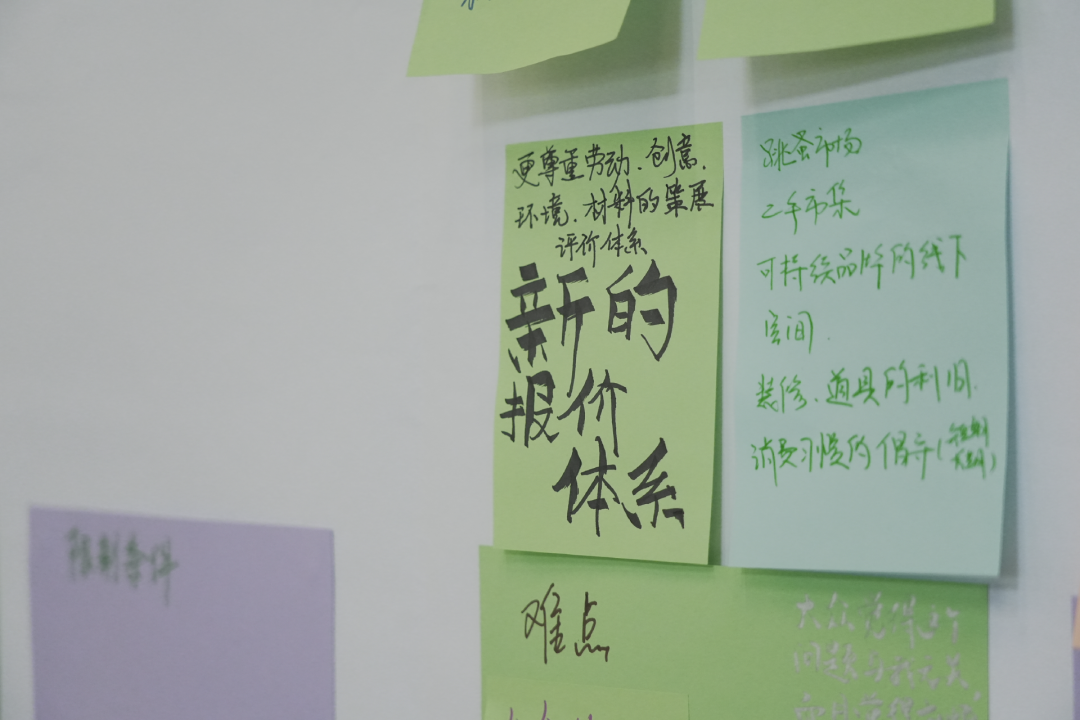 更尊重劳动、创意、
环境、材料的策展
评价体系
新的
报价
体系
跳蚤市场
二手市集
可持续品牌的线下
空间.
装修、道具的利旧.
消费习惯的倡导(
限制条件
难点
大众
问题